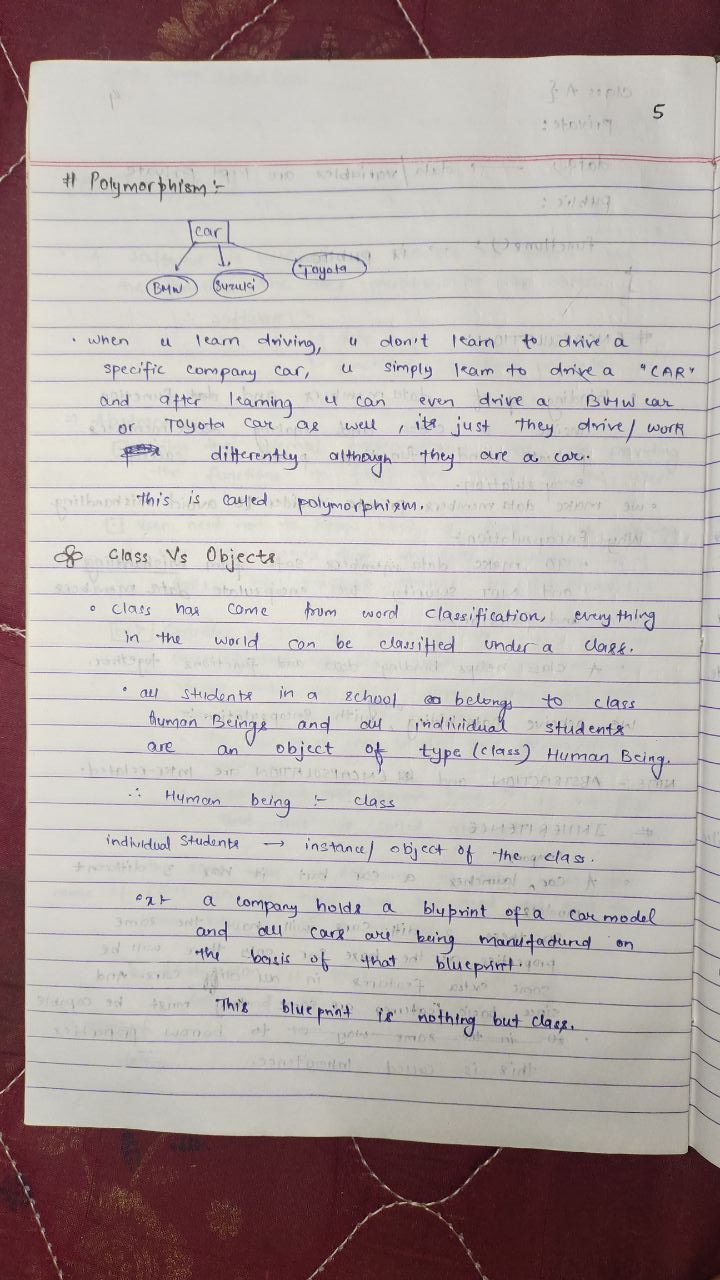 5
# Polymorphism :-
car
BMW Suzuki Toyota
• when u learn driving, u don't learn to drive a
specific company car, u simply learn to drive a "CAR"
and after learning u can even drive a BMW car
or Toyota car as well, its just they drive/work
differently although they are a car.
This is called polymorphism.
Class Vs Objects
• class has come from word classification, everything
in the world can be classified under a class.
• all students in a school belongs to class
Human Beings and all individual students
are an object of type (class) Human Being.
∴ Human being :- class
individual students → instance/object of the class.
ex:- a company holds a bluprint of a car model
and all cars are being manufactured on
the basis of that blueprint.
This blueprint is nothing but class.